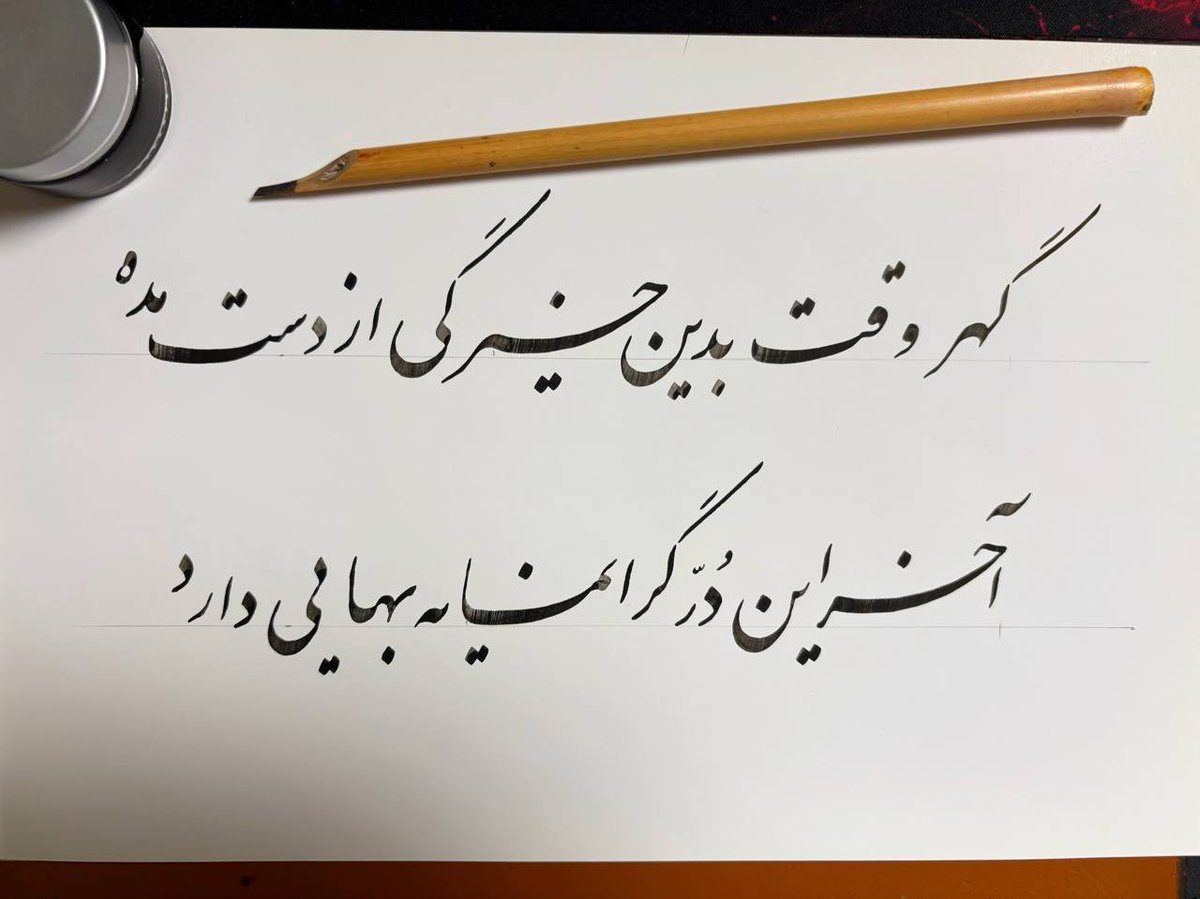 گهر وقت بدین خیرگی از دست مده
آخر این دُرّ گرانمایه بهایی دارد